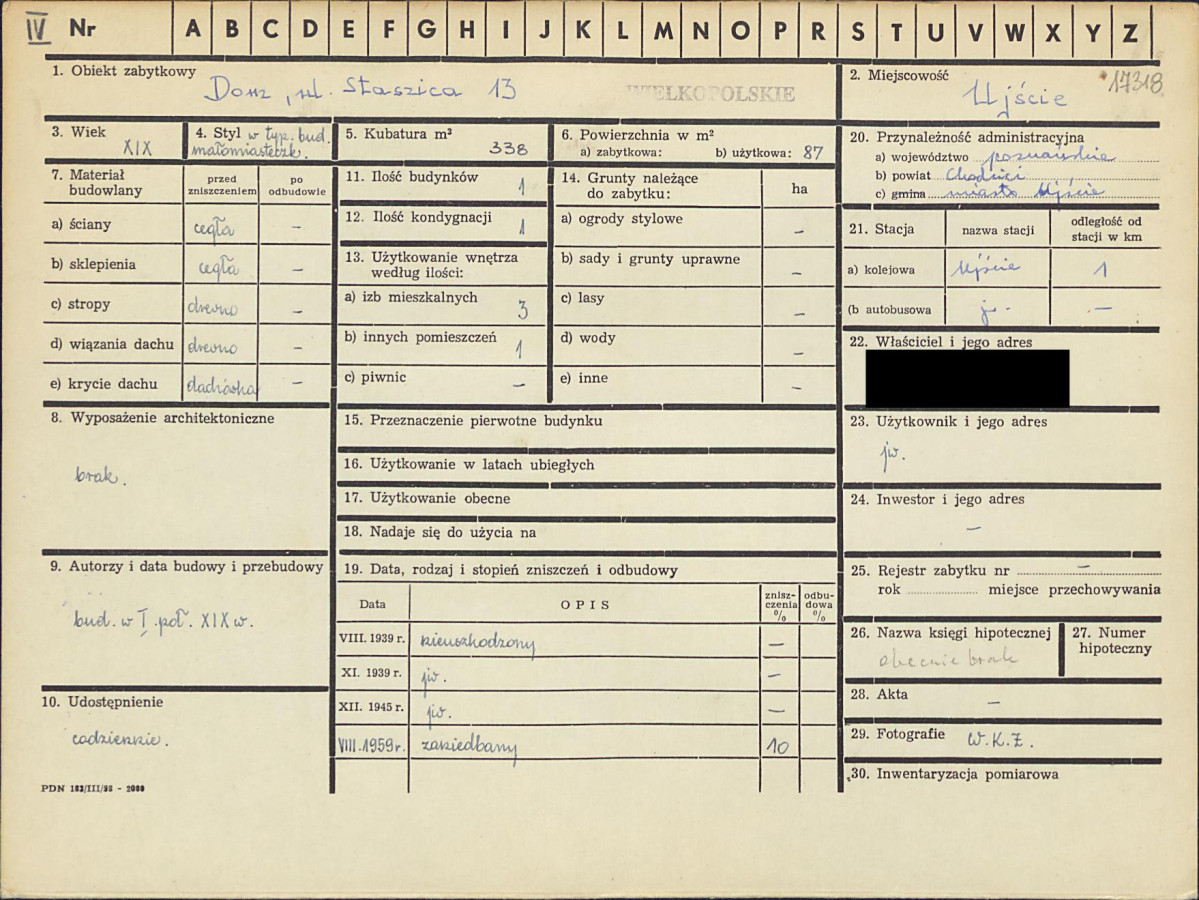 IV Nr A B C D E F G H I J K L M N O P R S T U V W X Y Z
1. Obiekt zabytkowy
Dom, ul. Staszica 13
WIELKOPOLSKIE
2. Miejscowość
17318
Ujście
3. Wiek
XIX
4. Styl w typ. bud.
małomiasteczk.
5. Kubatura m³
338
6. Powierzchnia w m²
a) zabytkowa: b) użytkowa: 87
7. Materiał
budowlany
przed
zniszczeniem
po
odbudowie
a) ściany cegła –
b) sklepienia cegła –
c) stropy drewno –
d) wiązania dachu drewno –
e) krycie dachu dachówka –
8. Wyposażenie architektoniczne
brak.
9. Autorzy i data budowy i przebudowy
bud. w I. poł. XIX w.
10. Udostępnienie
codziennie.
PDN 182/III/58 - 2000
11. Ilość budynków
1
12. Ilość kondygnacji
1
13. Użytkowanie wnętrza
według ilości:
a) izb mieszkalnych
3
b) innych pomieszczeń
1
c) piwnic –
14. Grunty należące
do zabytku:
ha
a) ogrody stylowe –
b) sady i grunty uprawne –
c) lasy –
d) wody –
e) inne –
15. Przeznaczenie pierwotne budynku
16. Użytkowanie w latach ubiegłych
17. Użytkowanie obecne
18. Nadaje się do użycia na
19. Data, rodzaj i stopień zniszczeń i odbudowy
Data
OPIS
znisz-
czenia
%
odbu-
dowa
%
VIII. 1939 r. nieuszkodzony –
XI. 1939 r. jw. –
XII. 1945 r. jw. –
VIII. 1959 r. zaniedbany 10
20. Przynależność administracyjna
a) województwo poznańskie
b) powiat Chodzież
c) gmina miasto Ujście
21. Stacja
nazwa stacji
odległość od
stacji w km
a) kolejowa Ujście 1
(b autobusowa j. - –
22. Właściciel i jego adres
23. Użytkownik i jego adres
jw.
24. Inwestor i jego adres
–
25. Rejestr zabytku nr –
rok miejsce przechowywania
26. Nazwa księgi hipotecznej
obecnie brak
27. Numer
hipoteczny
28. Akta
–
29. Fotografie W.K.Z.
30. Inwentaryzacja pomiarowa